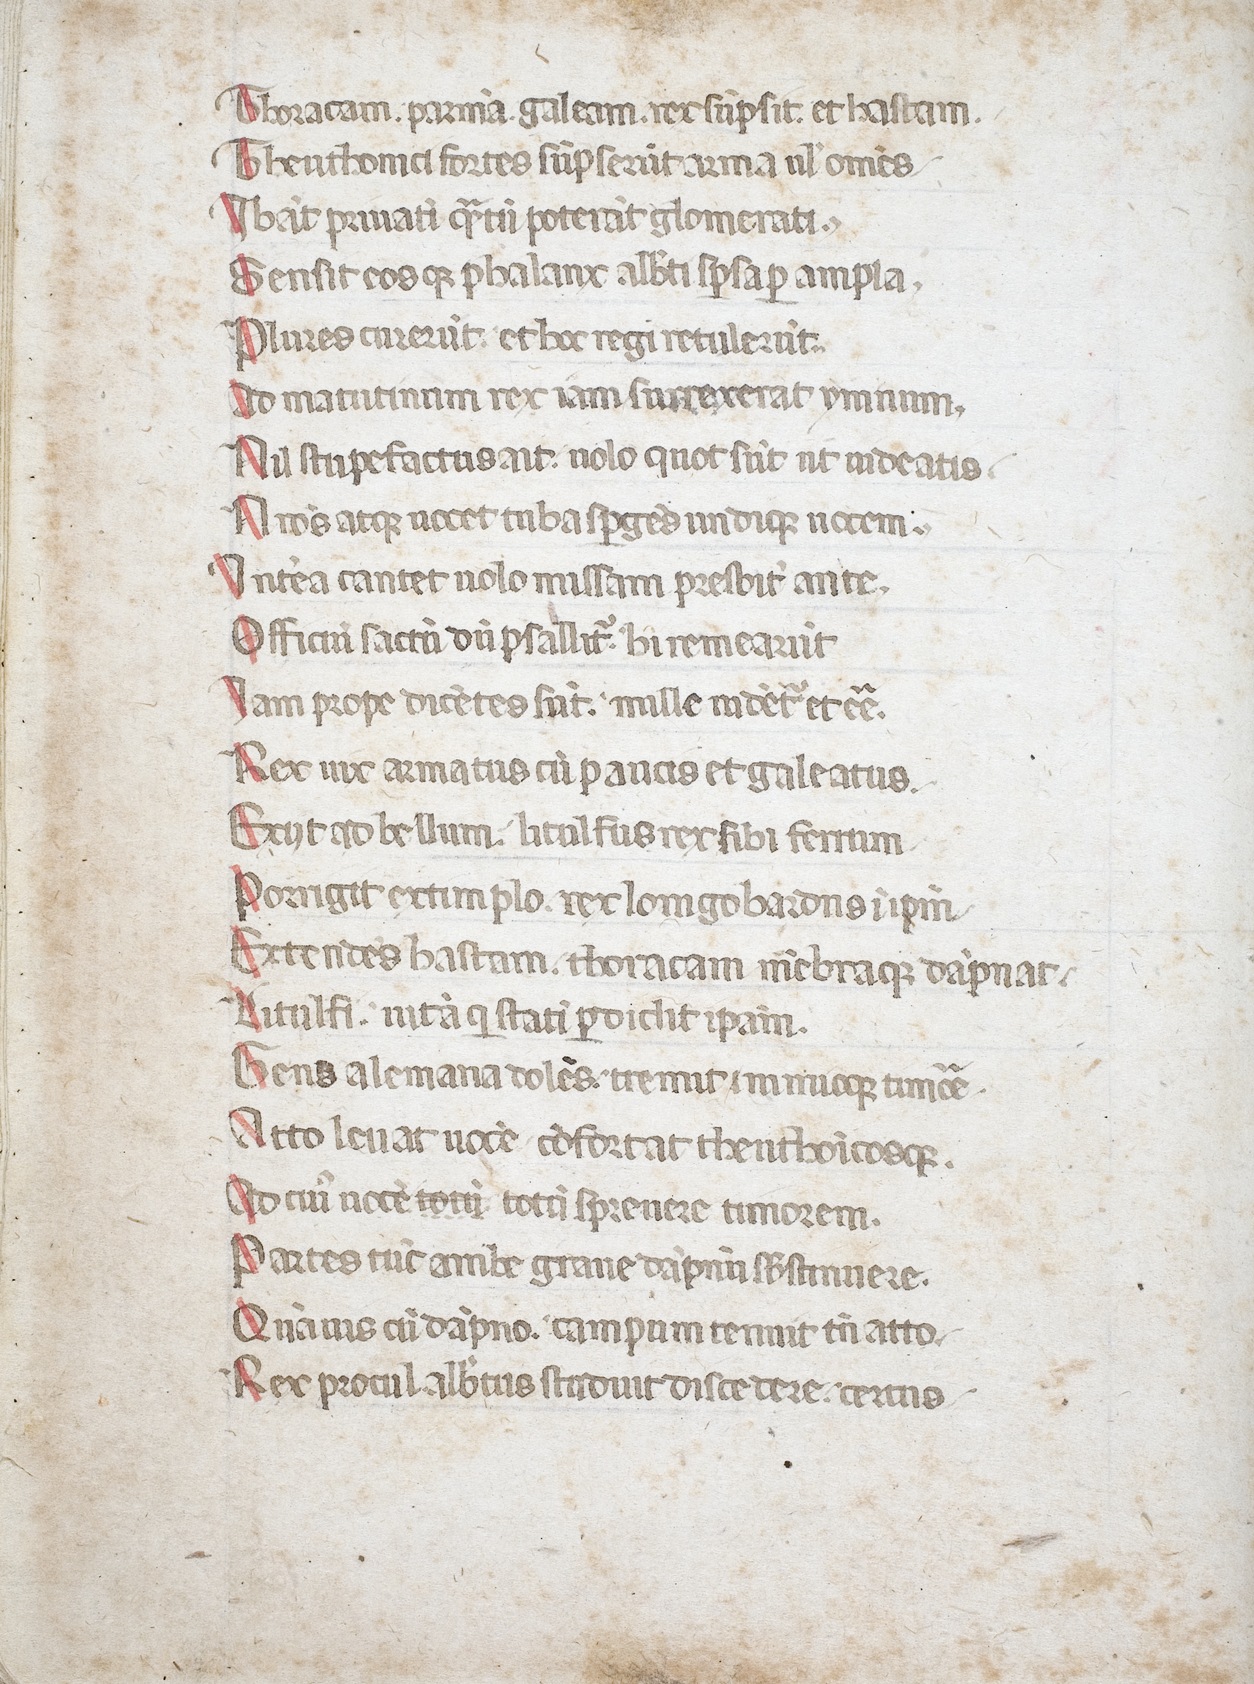 Thoracam. parmā. galeam. rex sūpsit. et hastam.
Theuthonici fortes sūpserūt arma ul' omēs
Ibāt priuati q̄ntū poterāt glomerati.
Sensit eosq; phalanx alb'ti spsa ꝑ ampla,
Plures currerūt. et hoc regi retulerūt.
Ad matutinum rex iam surrexerat ymnum,
Nil stupefactus ait. uolo quot sūt ut uideatis.
Atq; uocet tuba spgēs undiq; uocem.
Intēa cantet uolo missam presbit' ante.
Officiū sactū dū psallit'. hi remearūt
Iam prope dicētes sūt. mille uidēt' et cē.
Rex uix armatus cū paucis et galeatus.
Exijt ad bellum. litulfus rex sibi ferrum
Porrigit extimplo. rex longobardus i ipm
Extendēs hastam. thoracam mēbraq; dāpnat.
Litulfi. uitā q stati ꝑdidit ipam.
Gens alemana dolēs. tremit inimicaq; timēs.
Atto leuat uocē cōfortat theuthoīcosq;.
Ad cui' uocē totū totū spreuere timorem.
Partes tūc ambe graue dāpnū sb'stinuere.
Quāuis cū dāpno. campum tenuit tn̄ atto.
Rex procul alb'tus studuit discedere. certus